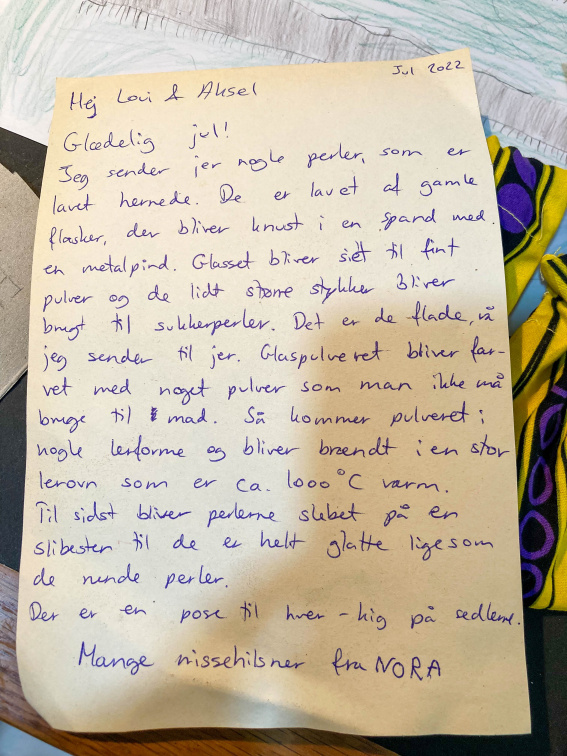 Jul 2022
Hej Lovi & Aksel
Glædelig jul!
Jeg sender jer nogle perler, som er
lavet hernede. De er lavet af gamle
flasker, der bliver knust i en spand med
en metalpind. Glasset bliver siet til fint
pulver og de lidt større stykker bliver
brugt til sukkerperler. Det er de flade,
jeg sender til jer. Glaspulveret bliver far-
vet med noget pulver som man ikke må
bruge til mad. Så kommer pulveret i
nogle lerforme og bliver brændt i en stor
lerovn som er ca. 1000°C varm.
Til sidst bliver perlerne slebet på en
slibesten til de er helt glatte ligesom
de runde perler.
Der er en pose til hver - kig på sedlerne.
Mange nissehilsner fra NORA